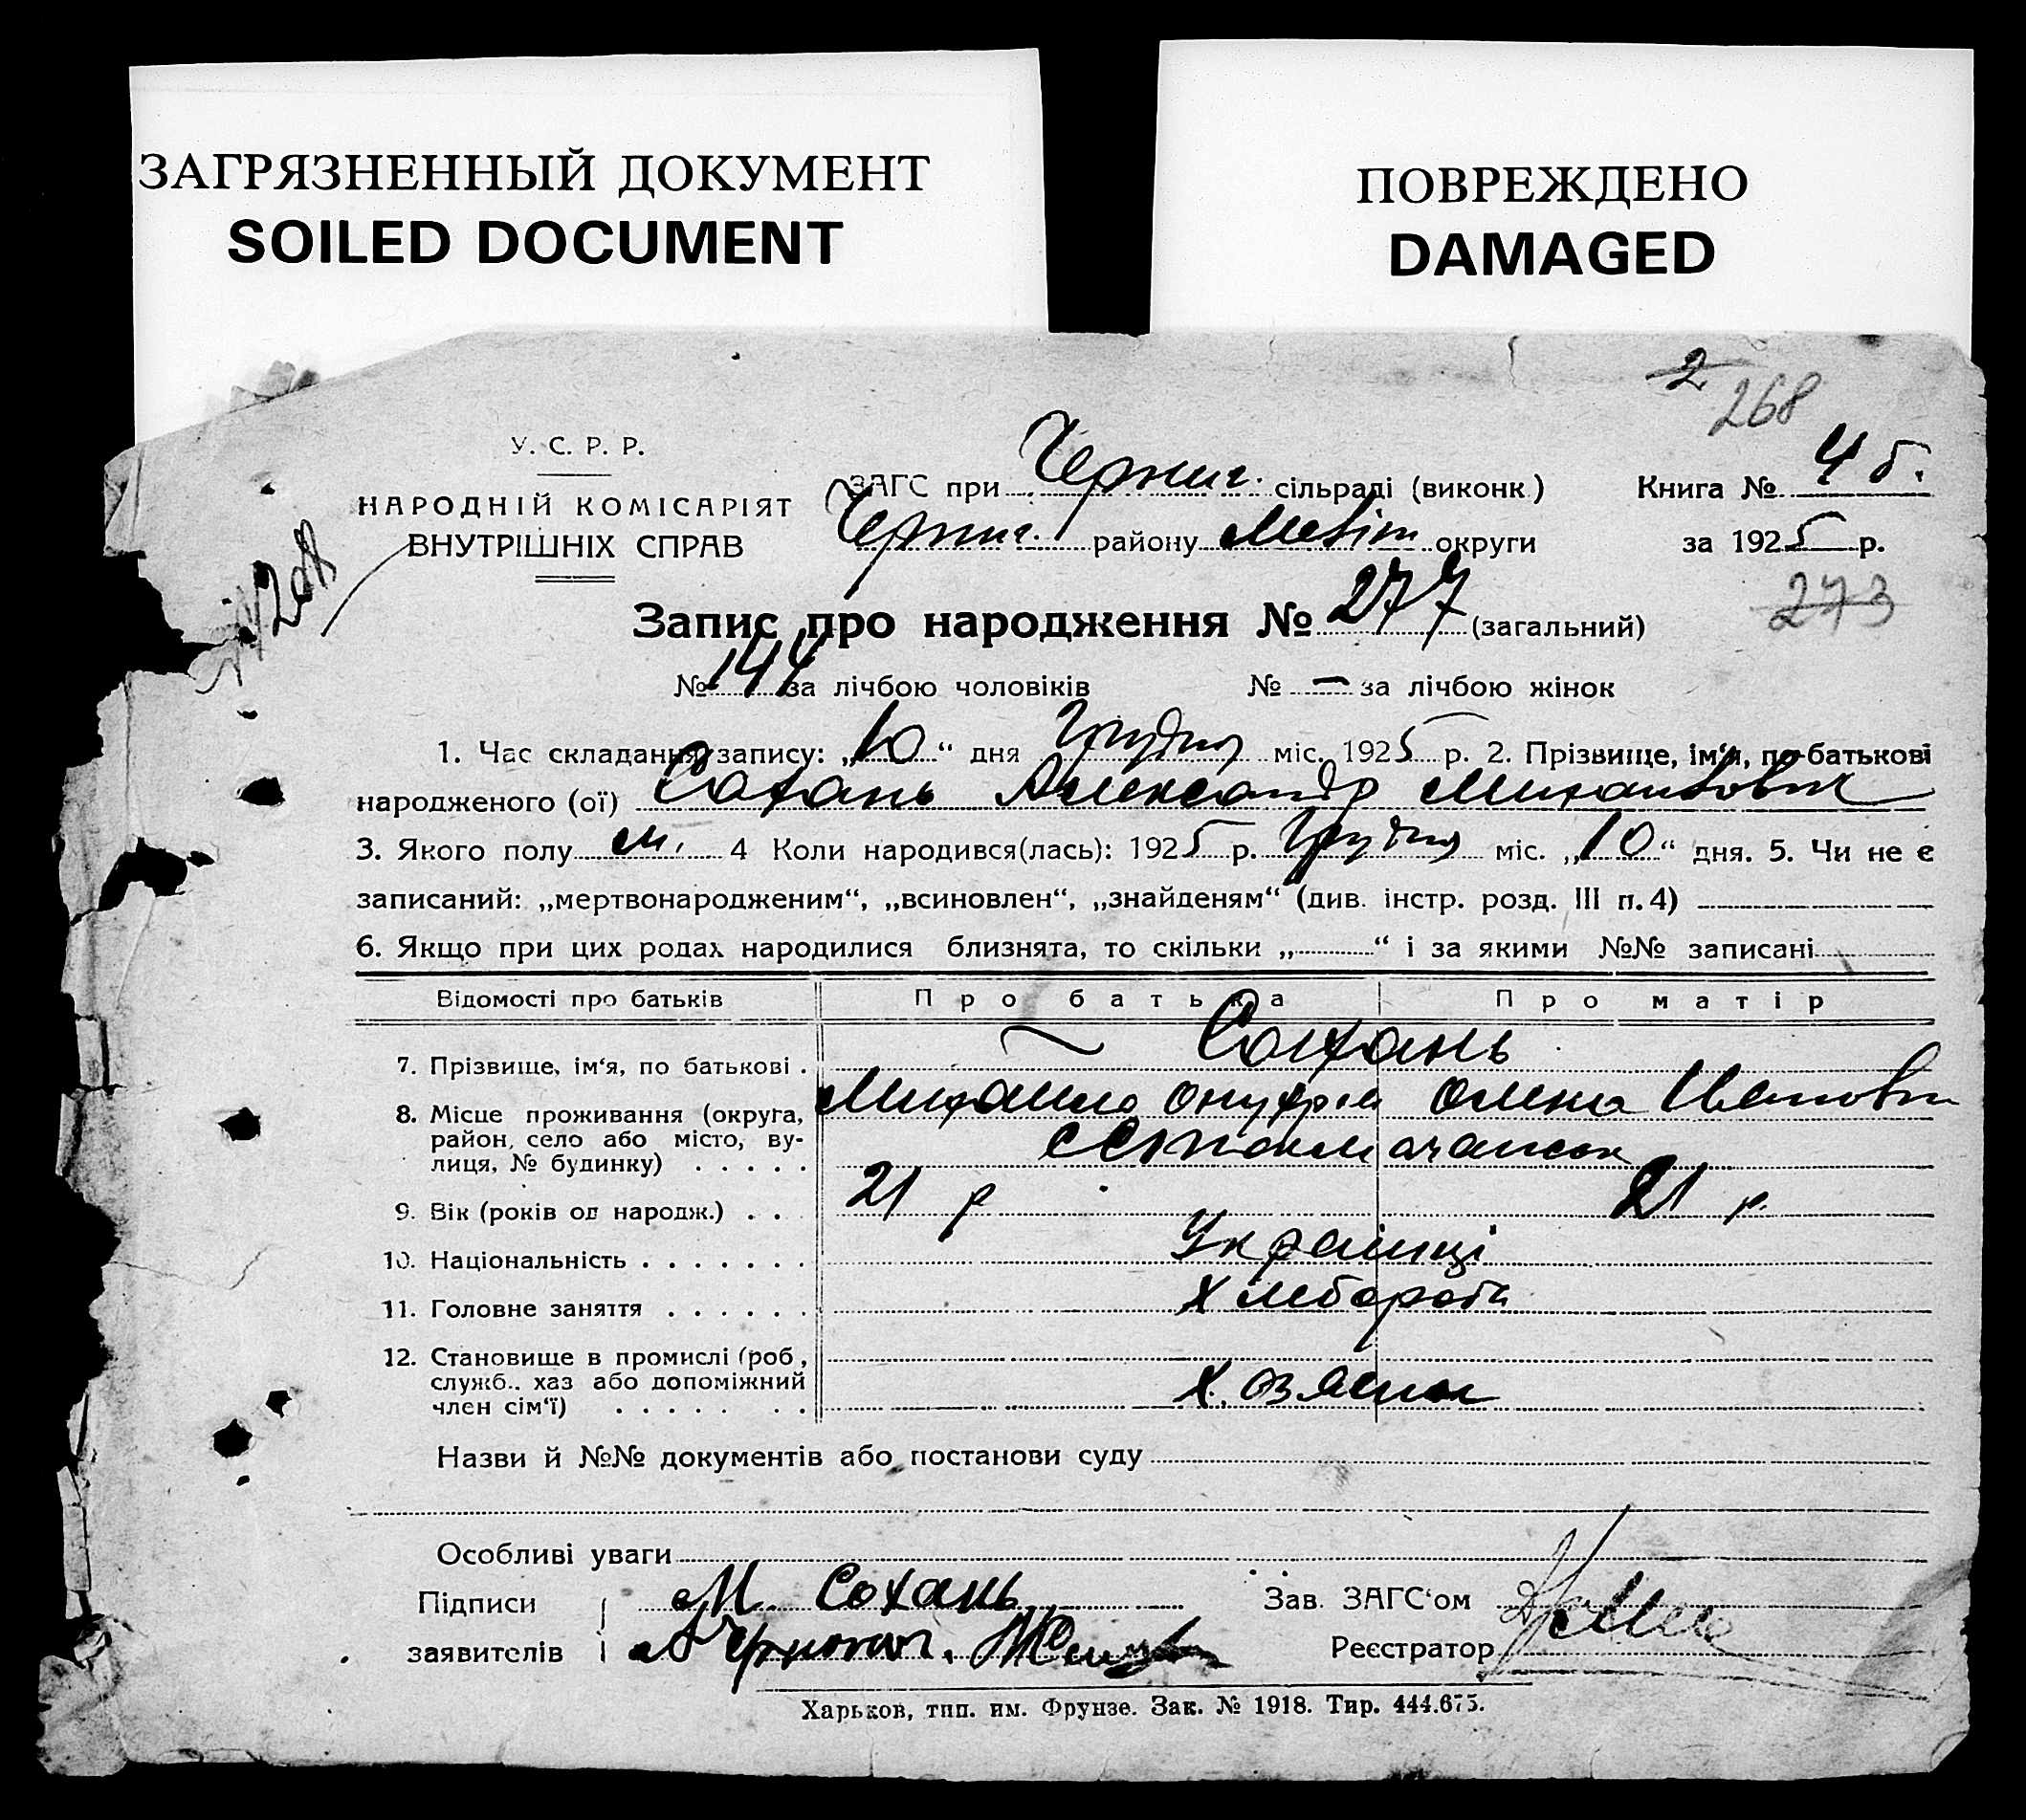 ЗАГРЯЗНЕННЫЙ ДОКУМЕНТ
SOILED DOCUMENT
ПОВРЕЖДЕНО
DAMAGED
2
268
У. С. Р. Р.
НАРОДНІЙ КОМІСАРІЯТ
ВНУТРІШНІХ СПРАВ
ЗАГС при Черниг. сільраді (виконк.) Книга № 4 б.
Черниг. району Меліт округи за 1925 р.
273
Запис про народження № 277 (загальний)
№ 144 за лічбою чоловіків № — за лічбою жінок
1. Час складання запису: „10“ дня Грудня міс. 1925 р. 2. Прізвище, ім‘я, по-батькові
народженого (ої) Сохань Александр Михайлович
3. Якого полу м. 4 Коли народився(лась): 1925 р. Грудня міс. „10“ дня. 5. Чи не є
записаний: „мертвонародженим“, „всиновлен“, „знайденям“ (див. інстр. розд. III п. 4)
6. Якщо при цих родах народилися близнята, то скільки „ “ і за якими №№ записані
Відомості про батьків Про батька Про матір
7. Прізвище, ім‘я, по батькові . Сохань
Михайло Онуфрій Олена Івановн
8. Місце проживання (округа,
район, село або місто, ву-
лиця, № будинку) . . . . .
9. Вік (років од народж.) . . 21 р 21 р.
10. Національність . . . . . . . Українці
11. Головне заняття . . . . . . Хлебороби
12. Становище в промислі (роб.,
служб., хаз або допоміжний
член сім‘ї) . . . . . . . Хозяини
Назви й №№ документів або постанови суду
Особливі уваги
Підписи М. Сохань Зав. ЗАГС‘ом
заявителів Реєстратор
Харьков, тип. им. Фрунзе. Зак. № 1918. Тир. 444.675.